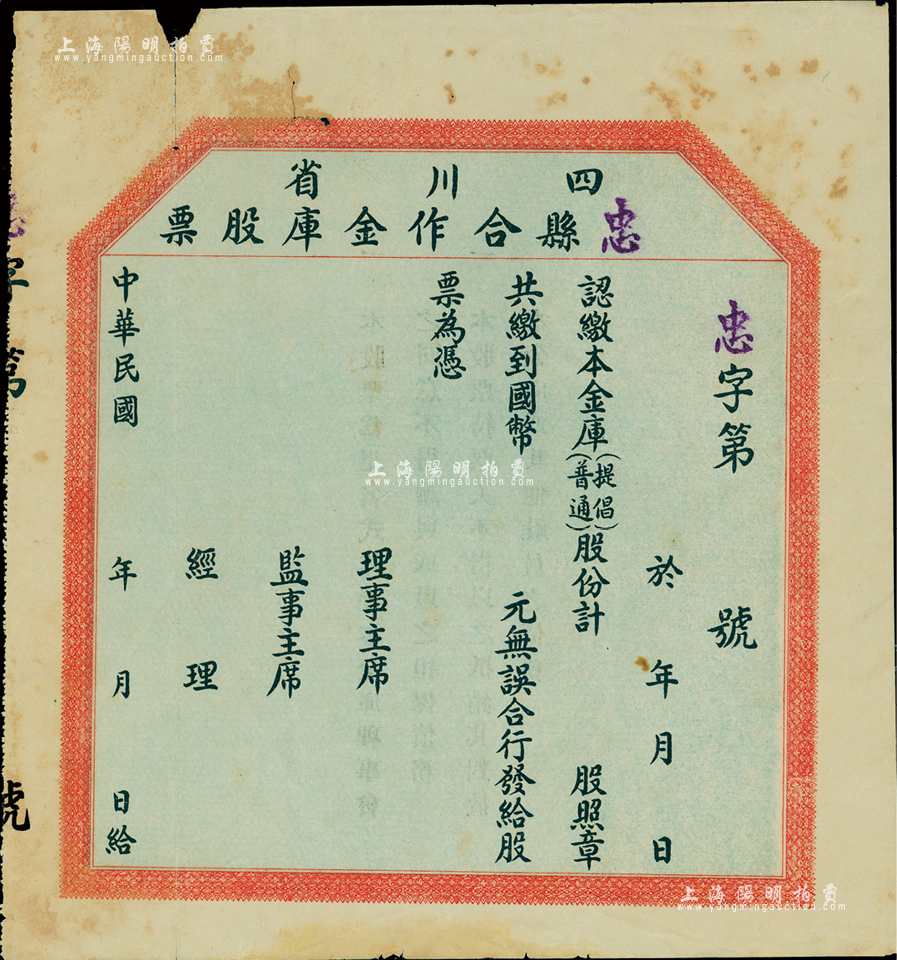 上海陽明拍賣
www.yangmingauction.com
四川省
忠縣合作金庫股票
忠字第　號
於　年　月　日
認繳本金庫（提倡普通）股份計　股照章
共繳到國幣　元無誤合行發給股
票為憑
理事主席
監事主席
經理
中華民國　年　月　日給
字第　號
上海陽明拍賣
www.yangmingauction.com
上海陽明拍賣
www.yangmingauction.com